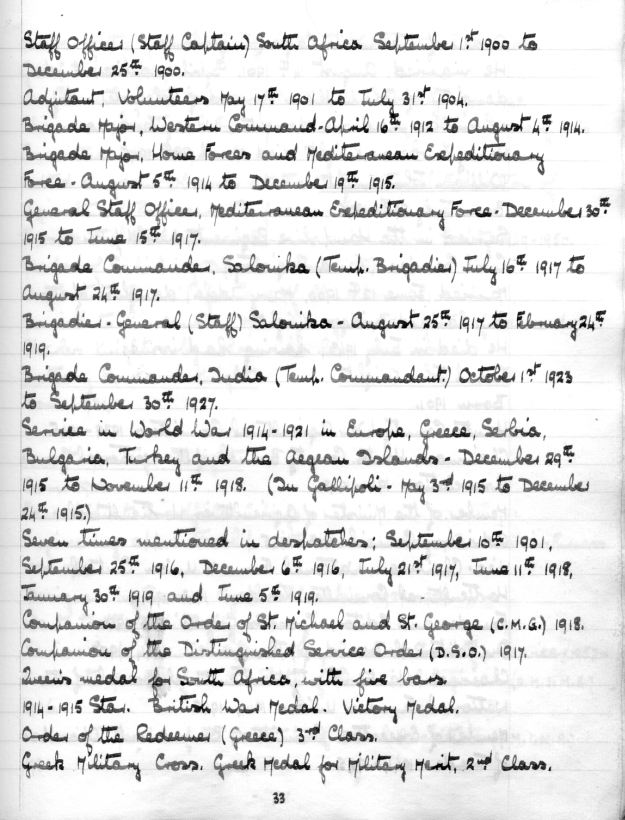 Staff Officer (Staff Captain) South Africa September 1st 1900 to
December 25th 1900.
Adjutant, Volunteers May 17th 1901 to July 31st 1904.
Brigade Major, Western Command - April 16th 1912 to August 4th 1914.
Brigade Major, Home Forces and Mediterranean Expeditionary
Force - August 5th 1914 to December 19th 1915.
General Staff Officer, Mediterranean Expeditionary Force - December 30th
1915 to June 15th 1917.
Brigade Commander, Salonika (Temp. Brigadier) July 16th 1917 to
August 24th 1917.
Brigadier - General (Staff) Salonika - August 25th 1917 to February 24th
1919.
Brigade Commander, India (Temp. Commandant.) October 1st 1923
to September 30th 1927.
Service in World War 1914-1921 in Europe, Greece, Serbia,
Bulgaria, Turkey and the Aegean Islands - December 29th
1915 to November 11th 1918. (In Gallipoli - May 3rd 1915 to December
24th 1915.)
Seven times mentioned in despatches; September 10th 1901,
September 25th 1916, December 6th 1916, July 21st 1917, June 11th 1918,
January 30th 1919 and June 5th 1919.
Companion of the Order of St. Michael and St. George (C.M.G.) 1918.
Companion of the Distinguished Service Order (D.S.O.) 1917.
Queen's medal for South Africa, with five bars.
1914-1915 Star. British War Medal. Victory Medal.
Order of the Redeemer (Greece) 3rd Class.
Greek Military Cross. Greek Medal for Military Merit, 2nd Class.
33